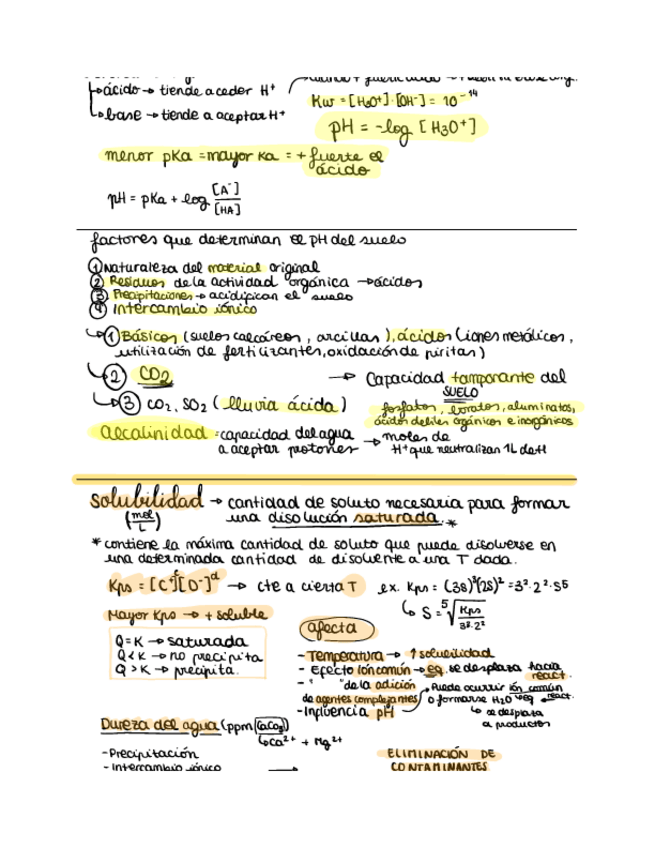 ácido → tiende a ceder H⁺
base → tiende a aceptar H⁺
Kw = [H₃O⁺]·[OH⁻] = 10⁻¹⁴
pH = -log [H₃O⁺]
menor pKa = mayor Ka = + fuerte el
ácido
pH = pKa + log [A⁻]/[HA]
factores que determinan el pH del suelo
① Naturaleza del material original
② Residuos de la actividad orgánica → ácidos
③ Precipitaciones → acidifican el suelo
④ Intercambio iónico
① Básicos (suelos calcáreos, arcillas), ácidos (iones metálicos,
utilización de fertilizantes, oxidación de piritas)
② CO₂
③ CO₂, SO₂ (lluvia ácida)
→ Capacidad tamponante del
SUELO
fosfatos, boratos, aluminatos,
ácidos débiles orgánicos e inorgánicos
alcalinidad = capacidad del agua
a aceptar protones
→ moles de
H⁺ que neutralizan 1L de H
solubilidad → cantidad de soluto necesaria para formar
(mol/L) una disolución saturada.*
* contiene la máxima cantidad de soluto que puede disolverse en
una determinada cantidad de disolvente a una T dada.
Kps = [C⁺]ᶜ[D⁻]ᵈ → cte a cierta T ex. Kps = (3s)³(2s)² = 3³·2²·s⁵
↳ S = ⁵√Kps/3³·2²
Mayor Kps → + soluble
Q = K → saturada
Q < K → no precipita
Q > K → precipita.
afecta
- Temperatura → ↑ solubilidad
- Efecto ión común → eq. se desplaza hacia
react.
- " " de la adición
de agentes complejantes
Puede ocurrir ión común
o formarse H₂O → eq react.
↳ se desplaza
a productos
- Influencia pH
Dureza del agua (ppm CaCO₃)
↳ Ca²⁺ + Mg²⁺
- Precipitación
- Intercambio iónico →
ELIMINACIÓN DE
CONTAMINANTES